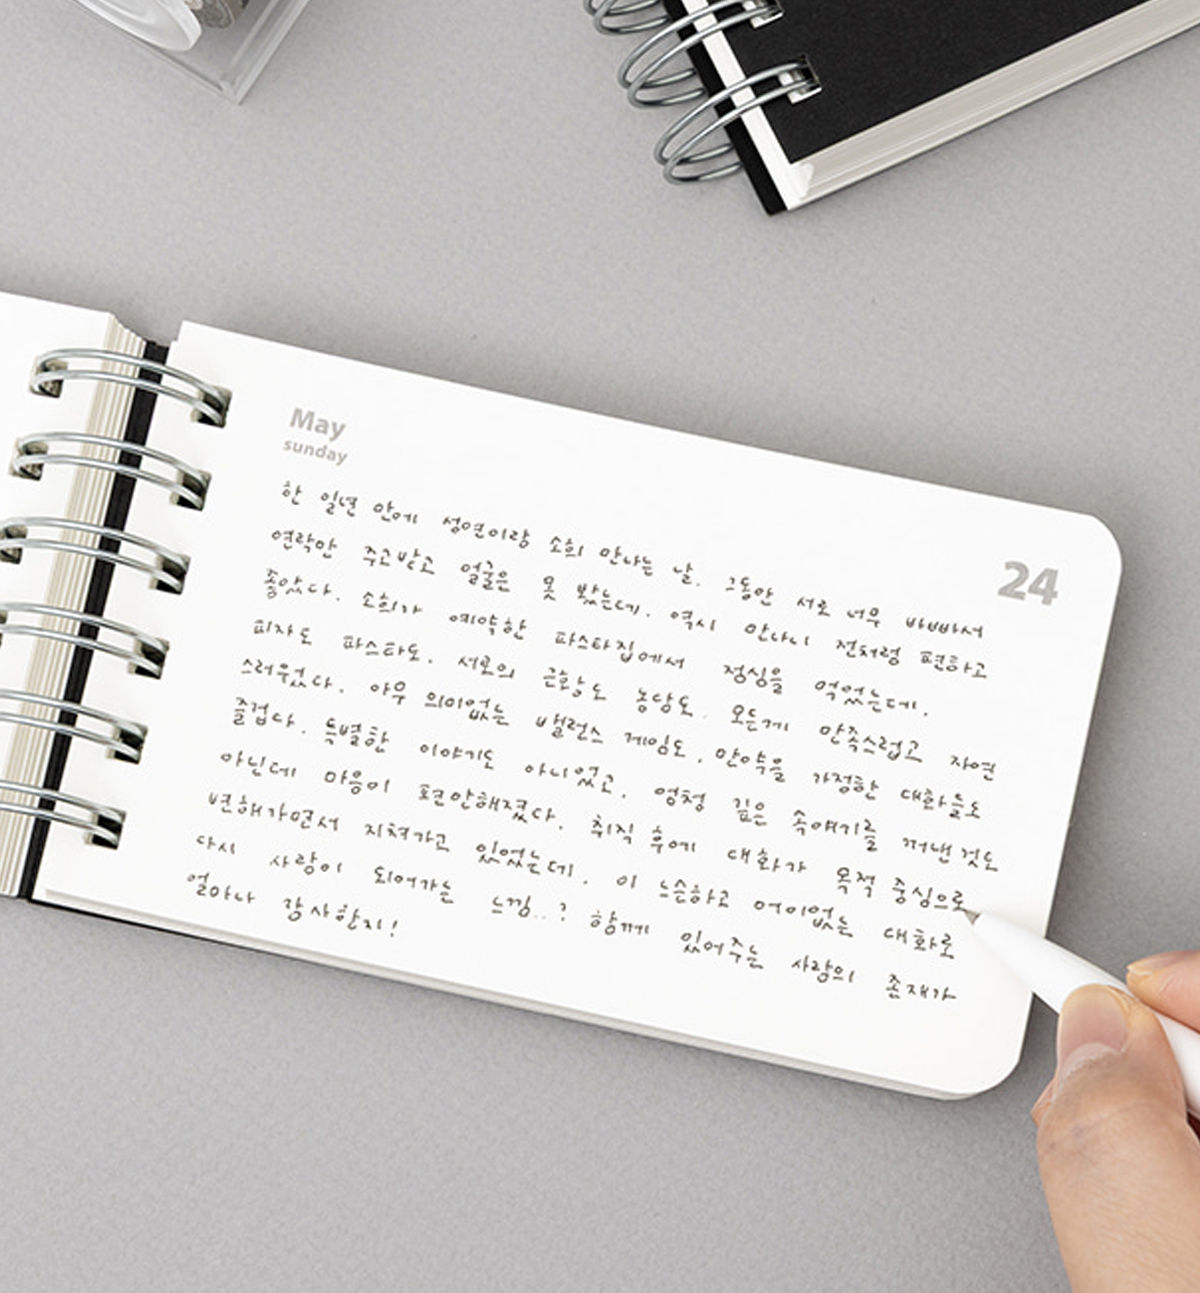 May
sunday
24
한 일년 만에 성연이랑 소희 만나는 날. 그동안 서로 너무 바빠서
연락만 주고받고 얼굴은 못 봤는데. 역시 만나니 전처럼 편하고
좋았다. 소희가 예약한 파스타집에서 점심을 먹었는데.
피자도 파스타도. 서로의 근황도 농담도. 모든게 만족스럽고 자연
스러웠다. 아무 의미없는 밸런스 게임도. 만약을 가정한 대화들도
즐겁다. 특별한 이야기도 아니었고. 엄청 깊은 속얘기를 꺼낸것도
아닌데 마음이 편안해졌다. 취직 후에 대화가 목적 중심으로
변해가면서 지쳐가고 있었는데. 이 느슨하고 어이없는 대화로
다시 사람이 되어가는 느낌..? 함께 있어주는 사람의 존재가
얼마나 감사한지!